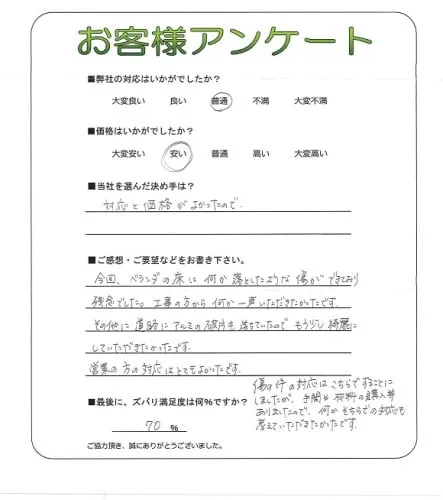 お客様アンケート
■弊社の対応はいかがでしたか？
大変良い 良い 普通 不満 大変不満
■価格はいかがでしたか？
大変安い 安い 普通 高い 大変高い
■当社を選んだ決め手は？
対応と価格がよかったので
■ご感想・ご要望などをお書き下さい。
今回、ベランダの床に何か落としたような傷ができており
残念でした。工事の方から何か一声いただきたかったです。
その他に道路にアルミの破片も落ちていたのでもう少し綺麗に
していただきたかったです。
営業の方の対応はとてもよかったです。
傷の件の対応はこちらですることに
しましたが、手間と材料の購入等
ありましたので、何かそちらでの対応も
考えていただきたかったです。
■最後に、ズバリ満足度は何%ですか？
70 %
ご協力頂き、誠にありがとうございました。